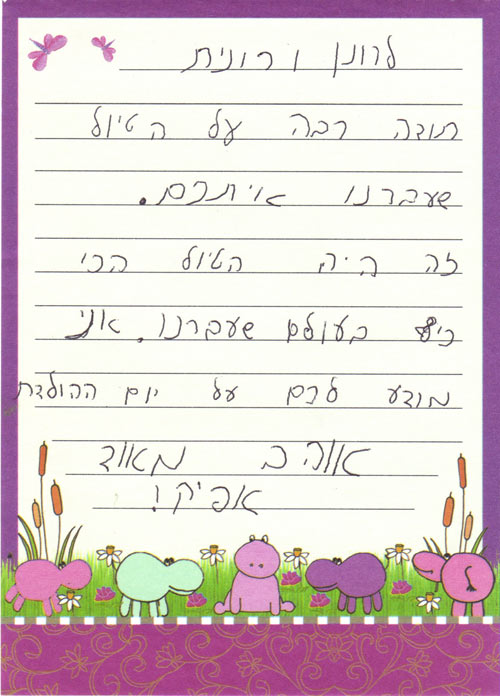 לרונן ורונית
תודה רבה על הטיול
שעברנו איתכם.
זה היה הטיול הכי
כיף בעולם שעברנו. אני
מודע לכם על יום ההולדת
אוהב מאוד
אפיק!